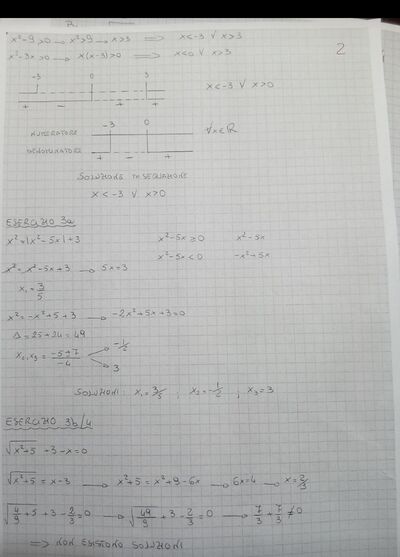 x²-9>0 → x²>9 → x>3 ⟹ x<-3 ∨ x>3
x²-3x>0 → x(x-3)>0 ⟹ x<0 ∨ x>3
2
-3 0 3
+ - + +
x<-3 ∨ x>0
-3 0
NUMERATORE
∀x∈ℝ
DENOMINATORE
+ - +
SOLUZIONE DISEQUAZIONE
x<-3 ∨ x>0
ESERCIZIO 3a
x²=|x²-5x|+3 x²-5x≥0 x²-5x
x²-5x<0 -x²+5x
x²=x²-5x+3 → 5x=3
x₁=3/5
x²=-x²+5+3 → -2x²+5x+3=0
Δ=25+24=49
x₂,x₃=(-5±7)/-4 -1/2
3
SOLUZIONI: x₁=3/5 ; x₂=-1/2 ; x₃=3
ESERCIZIO 3b/4
√(x²+5) +3-x=0
√(x²+5) = x-3 → x²+5=x²+9-6x → 6x=4 → x=2/3
√(4/9+5) +3-2/3=0 → √(49/9) +3-2/3=0 → 7/3+7/3≠0
⟹ NON ESISTONO SOLUZIONI